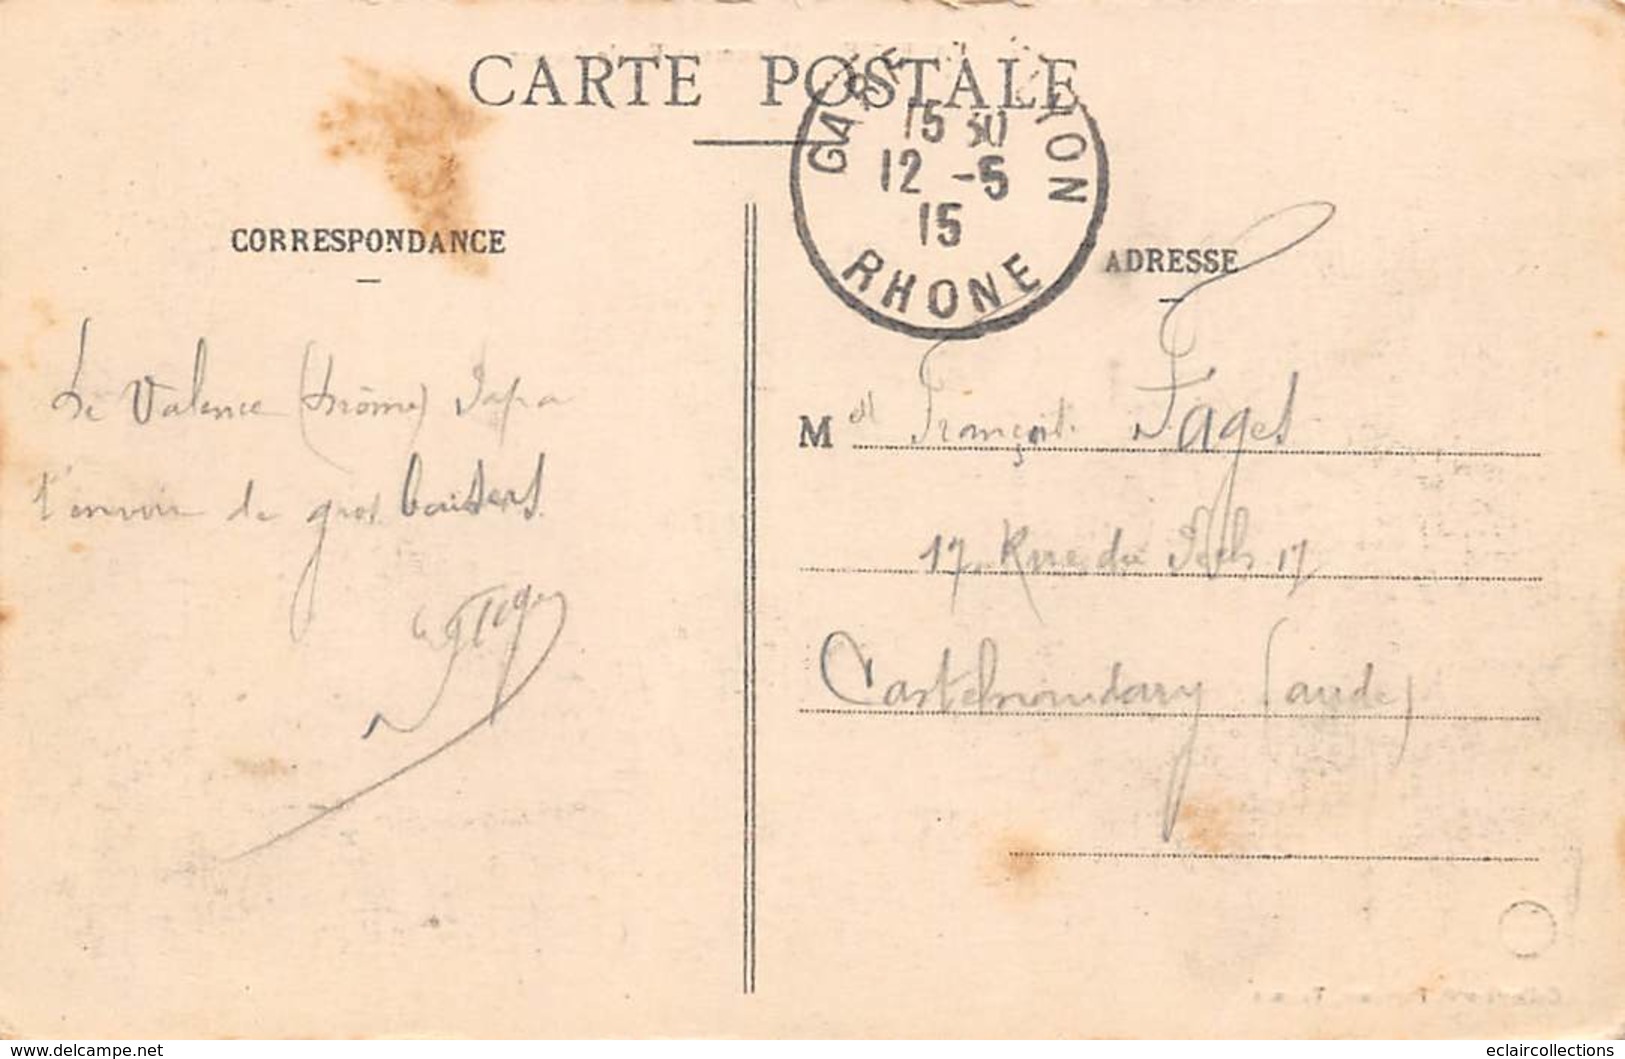 CARTE POSTALE
GARE LYON
15 30
12 -5
15
RHONE
CORRESPONDANCE
De Valence (Drôme) Papa
t'envoie de gros baisers.
ADRESSE
Mell Fages
17, Rue du 17
Castelnaudary (aude)
www.delcampe.net
eclaircollections